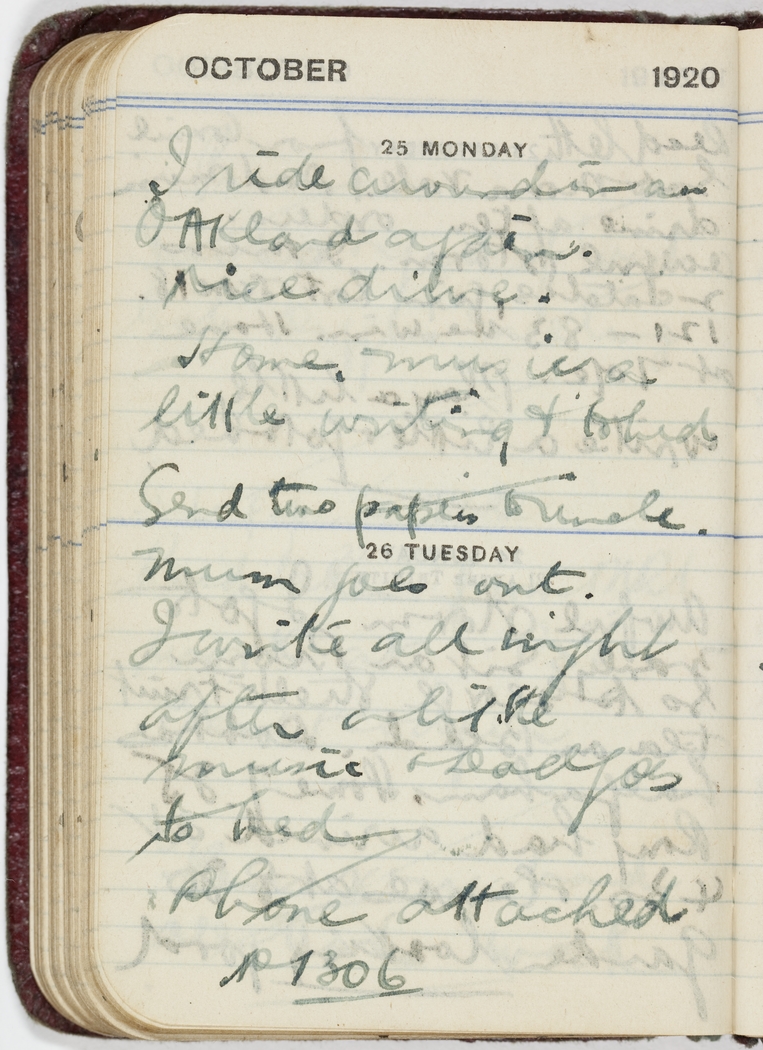 OCTOBER 1920
25 MONDAY
I ride around in an
Oakland again.
Nice drive.
Home, music a
little writing & to bed
Send two papers to uncle.
26 TUESDAY
Mum goes out.
I write all night
after a little
music & Dad goes
to bed
Phone attached
P1306